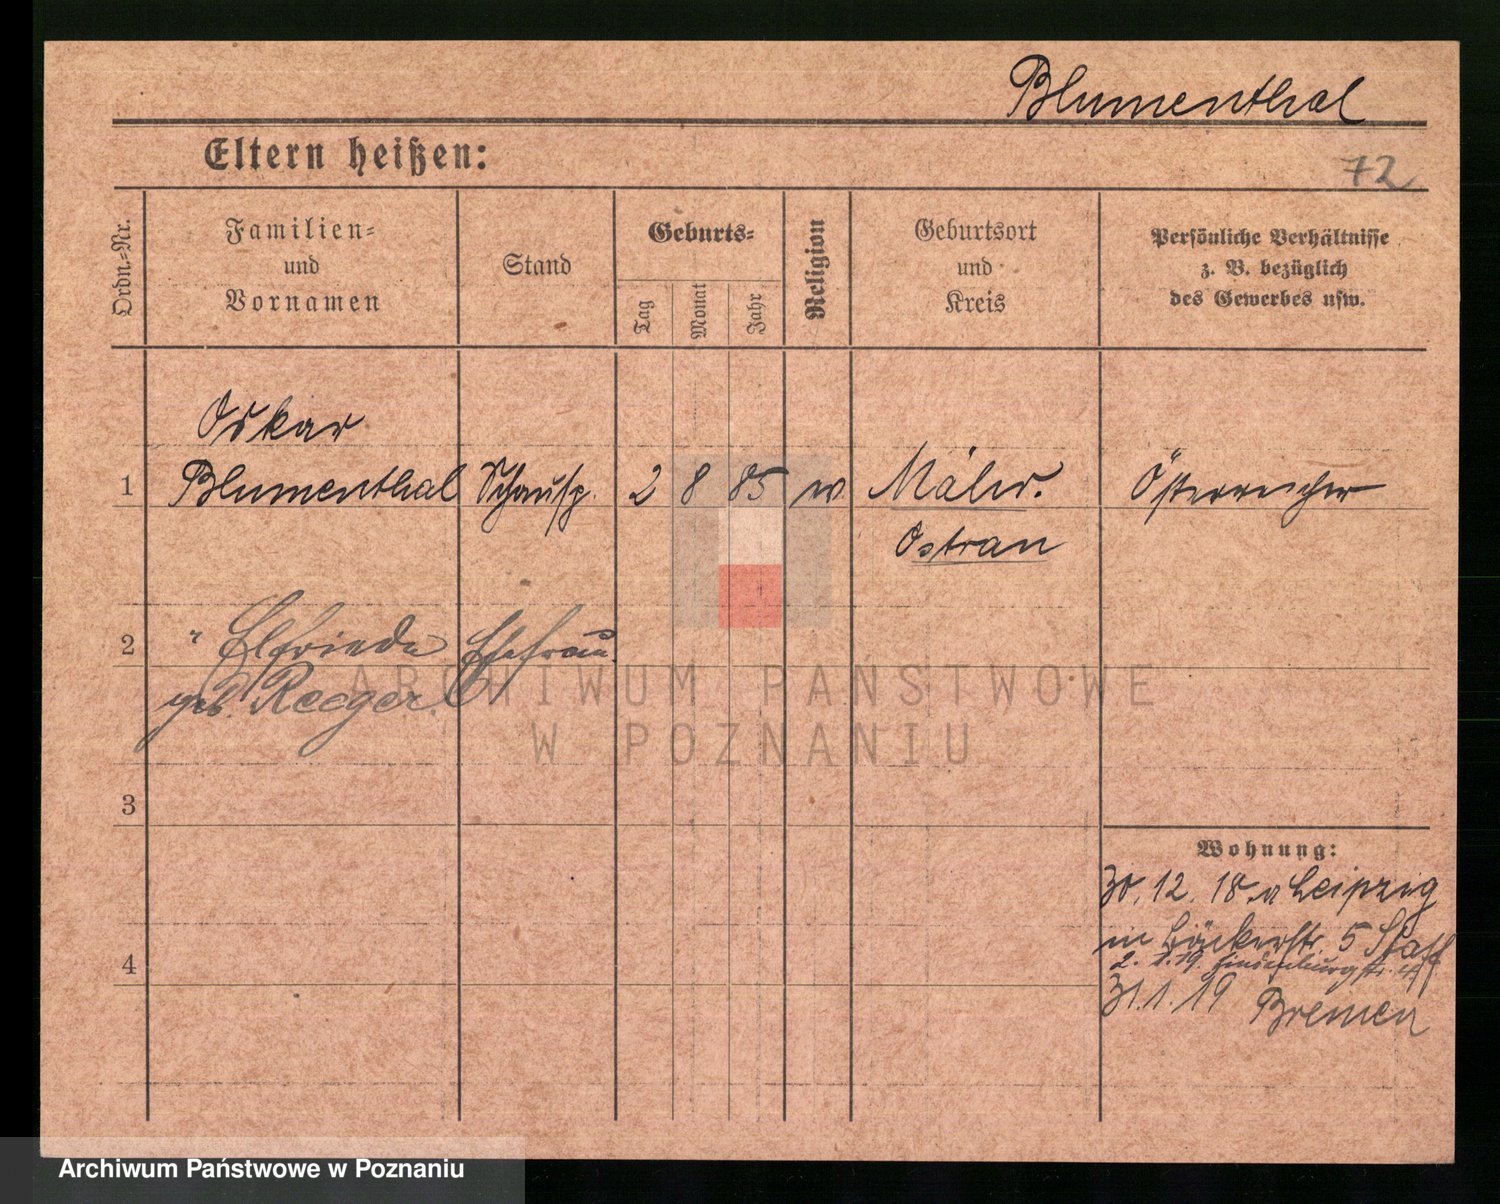 Blumenthal
Eltern heißen:
72
Ordn.-Nr.
Familien-
und
Vornamen
Stand
Geburts-
Tag
Monat
Jahr
Religion
Geburtsort
und
Kreis
Persönliche Verhältnisse
z. B. bezüglich
des Gewerbes usw.
Oskar
1 Blumenthal Schausp. 2 8 85 Mähr. Österreicher
Ostrau
2 " Elfriede Ehefrau
geb. Reeger.
ARCHIWUM PAŃSTWOWE
W POZNANIU
3
Wohnung:
30.12.18. a Leipzig
in Bäckerstr. 5
4
2.1.19. Hindenburgstr.
31.1.19 Bremen
Archiwum Państwowe w Poznaniu